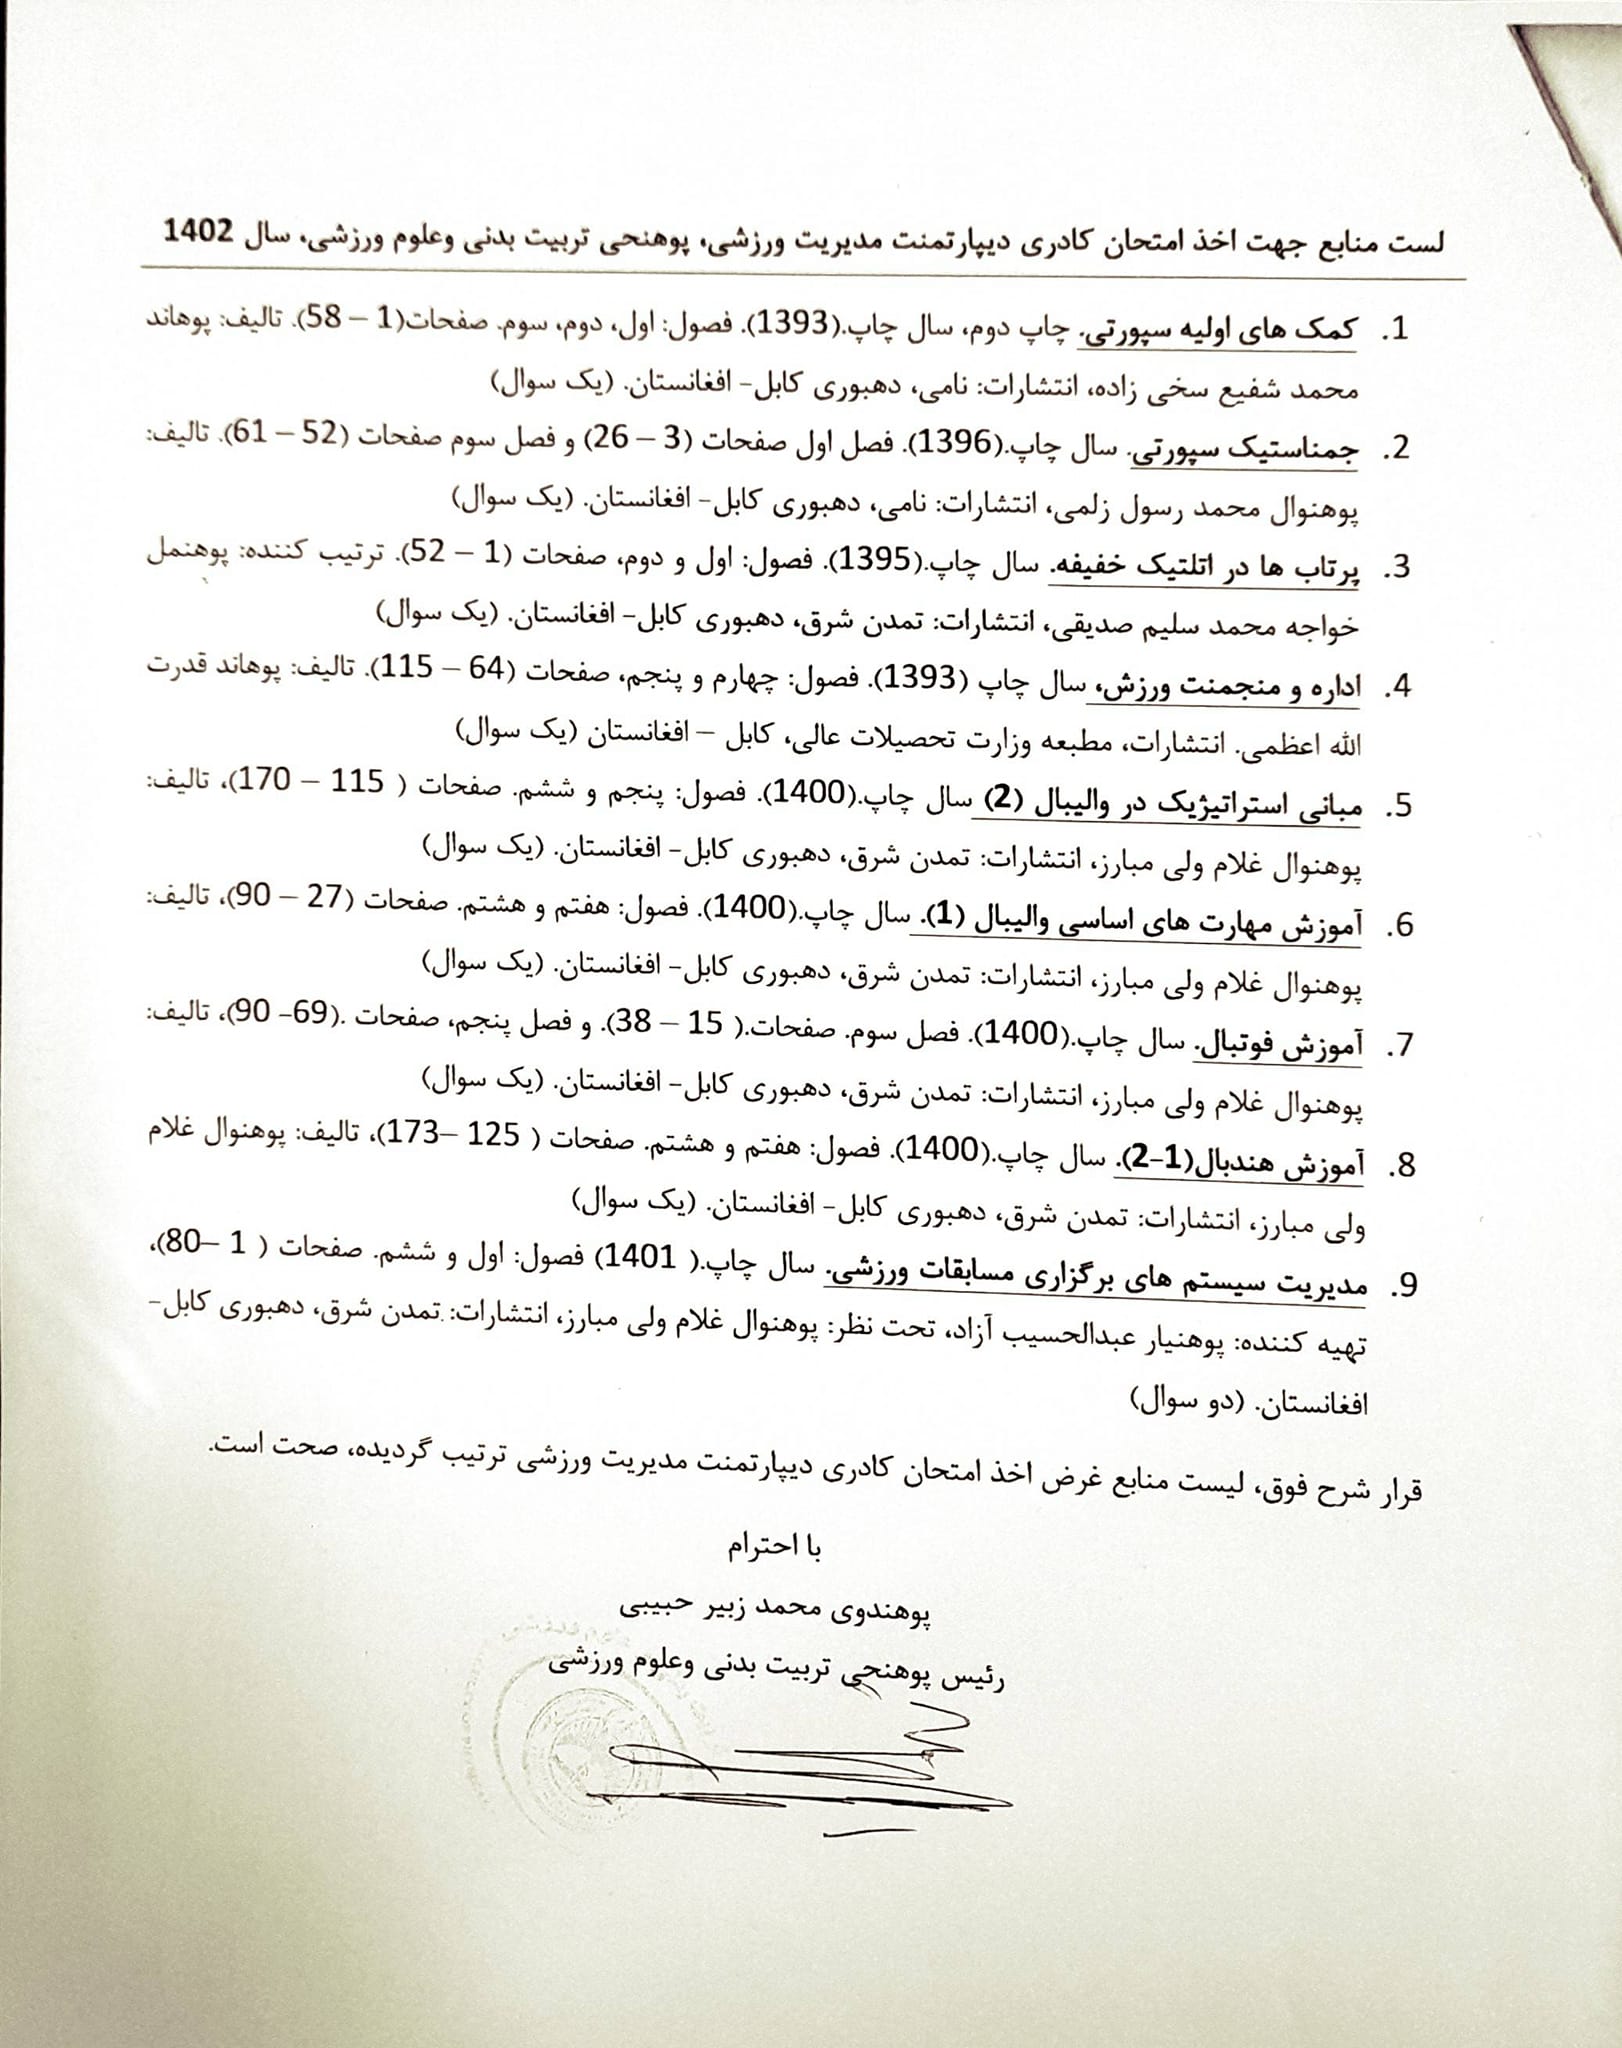 لست منابع جهت اخذ امتحان کادری دیپارتمنت مدیریت ورزشی، پوهنحی تربیت بدنی وعلوم ورزشی، سال 1402
1. کمک های اولیه سپورتی. چاپ دوم، سال چاپ.(1393). فصول: اول، دوم، سوم. صفحات(1 – 58). تالیف: پوهاند
محمد شفیع سخی زاده، انتشارات: نامی، دهبوری کابل- افغانستان. (یک سوال)
2. جمناستیک سپورتی. سال چاپ.(1396). فصل اول صفحات (3 – 26) و فصل سوم صفحات (52 – 61). تالیف:
پوهنوال محمد رسول زلمی، انتشارات: نامی، دهبوری کابل- افغانستان. (یک سوال)
3. پرتاب ها در اتلتیک خفیفه. سال چاپ.(1395). فصول: اول و دوم، صفحات (1 – 52). ترتیب کننده: پوهنمل
خواجه محمد سلیم صدیقی، انتشارات: تمدن شرق، دهبوری کابل- افغانستان. (یک سوال)
4. اداره و منجمنت ورزش، سال چاپ (1393). فصول: چهارم و پنجم، صفحات (64 – 115). تالیف: پوهاند قدرت
الله اعظمی. انتشارات، مطبعه وزارت تحصیلات عالی، کابل – افغانستان (یک سوال)
5. مبانی استراتیژیک در والیبال (2) سال چاپ.(1400). فصول: پنجم و ششم. صفحات ( 115 – 170)، تالیف:
پوهنوال غلام ولی مبارز، انتشارات: تمدن شرق، دهبوری کابل- افغانستان. (یک سوال)
6. آموزش مهارت های اساسی والیبال (1). سال چاپ.(1400). فصول: هفتم و هشتم. صفحات (27 – 90)، تالیف:
پوهنوال غلام ولی مبارز، انتشارات: تمدن شرق، دهبوری کابل- افغانستان. (یک سوال)
7. آموزش فوتبال. سال چاپ.(1400). فصل سوم. صفحات.( 15 – 38). و فصل پنجم، صفحات .(69- 90)، تالیف:
پوهنوال غلام ولی مبارز، انتشارات: تمدن شرق، دهبوری کابل- افغانستان. (یک سوال)
8. آموزش هندبال(1-2). سال چاپ.(1400). فصول: هفتم و هشتم. صفحات ( 125 –173)، تالیف: پوهنوال غلام
ولی مبارز، انتشارات: تمدن شرق، دهبوری کابل- افغانستان. (یک سوال)
9. مدیریت سیستم های برگزاری مسابقات ورزشی. سال چاپ.( 1401) فصول: اول و ششم. صفحات ( 1 –80)،
تهیه کننده: پوهنیار عبدالحسیب آزاد، تحت نظر: پوهنوال غلام ولی مبارز، انتشارات: تمدن شرق، دهبوری کابل-
افغانستان. (دو سوال)
قرار شرح فوق، لیست منابع غرض اخذ امتحان کادری دیپارتمنت مدیریت ورزشی ترتیب گردیده، صحت است.
با احترام
پوهندوی محمد زبیر حبیبی
رئیس پوهنحی تربیت بدنی وعلوم ورزشی